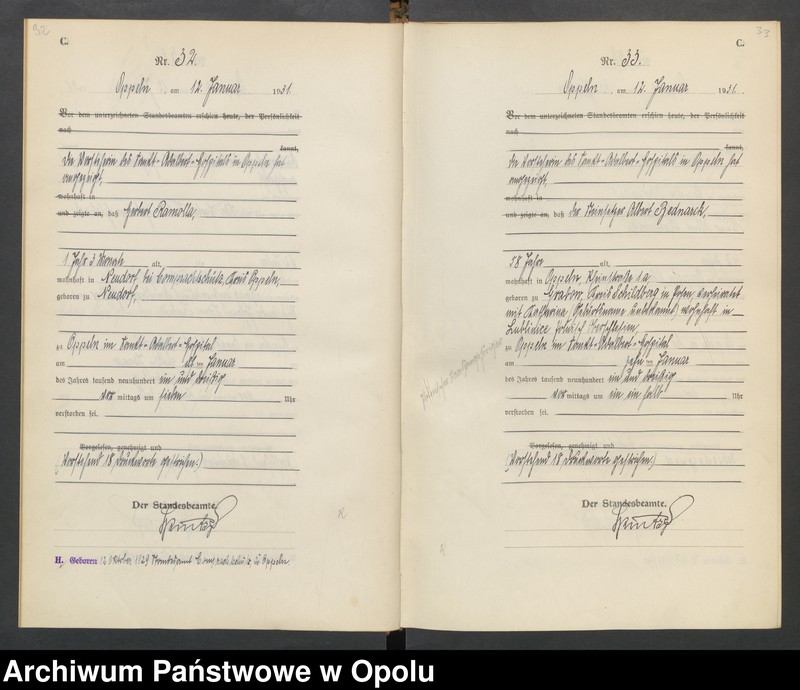 32
C.
Nr. 32.
Oppeln am 12. Januar 1931.
Vor dem unterzeichneten Standesbeamten erschien heute, der Persönlichkeit
nach
kannt,
Die Vorsteherin des Sankt-Adalbert-Hospitals in Oppeln hat
angezeigt,
wohnhaft in
und zeigte an, daß Herbert Ramolla,
1 Jahr 3 Monate alt,
wohnhaft in Neudorf, bei Comprachtschütz, Kreis Oppeln,
geboren zu Neudorf,
zu Oppeln im Sankt-Adalbert-Hospital
am elf ten Januar
des Jahres tausend neunhundert ein und dreißig
vor mittags um sieben Uhr
verstorben sei.
Vorgelesen, genehmigt und
(Vorstehend 18 Druckworte gestrichen.)
Der Standesbeamte.
H. Geboren 12 Oktober 1929 Standesamt Comprachtschütz, Kr Oppeln.
33
C.
Nr. 33.
Oppeln, am 12. Januar 1931.
Vor dem unterzeichneten Standesbeamten erschien heute, der Persönlichkeit
nach
kannt,
Die Vorsteherin des Sankt-Adalbert-Hospitals in Oppeln hat
angezeigt,
wohnhaft in
und zeigte an, daß der Steinsetzer Albert Bednarek,
58 Jahre alt,
wohnhaft in Oppeln, Rheinstraße 1a
geboren zu Grabow, Kreis Schildberg in Posen, verheiratet
mit Katharina (Geburtsname unbekannt) wohnhaft in
Lublinitz polnisch Oberschlesien,
zu Oppeln im Sankt-Adalbert-Hospital
am zehn ten Januar
des Jahres tausend neunhundert ein und dreißig
vor mittags um ein ein halb Uhr
verstorben sei.
Vorgelesen, genehmigt und
(Vorstehend 18 Druckworte gestrichen.)
Der Standesbeamte.
Archiwum Państwowe w Opolu